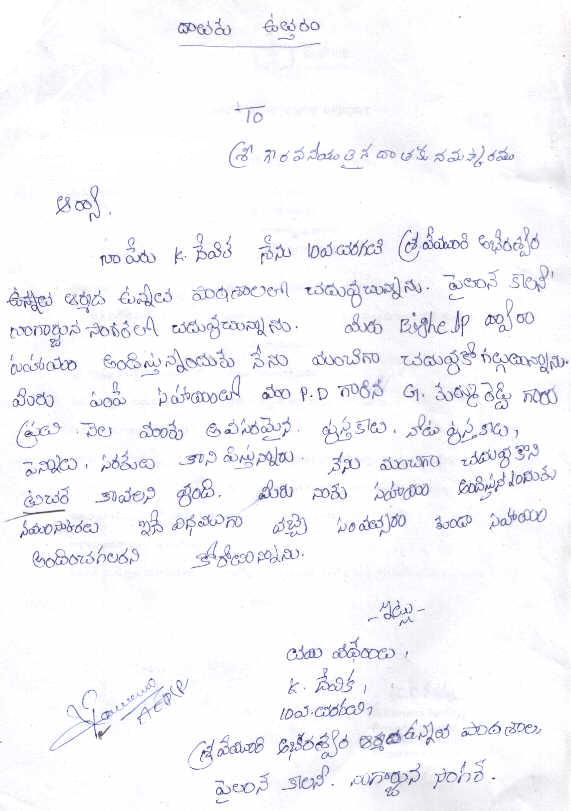 దాతకు ఉత్తరం
To
శ్రీ గౌరవనీయులైన దాతకు నమస్కారము
ఆర్యా,
నా పేరు K. దేవిక నేను 10వ తరగతి శ్రీ
ఉన్నత పాఠశాలలో చదువుచున్నాను. పైలాన్ కాలని
నాగార్జున సాగర్ లో చదువుచున్నాను. మీరు ద్వారా
సహాయం అందిస్తున్నందుకు నేను మంచిగా చదువుకో గల్గుచున్నాను.
మీరు పంపే సహాయంలో మా P.D గారైన G. రెడ్డి గారు
ప్రతి నెల మాకు అవసరమైన పుస్తకాలు, నోటు పుస్తకాలు,
పెన్నులు, సరకులు నేను మంచిగా చదువుకొని
టీచర్ కావాలని ఉంది. మీరు నాకు సహాయం అందిస్తున్నందుకు
నమస్కారలు ఇదే విధముగా వచ్చే సంవత్సరం కూడా సహాయం
అందించగలరని కోరుచున్నాను.
-ఇట్లు-
మీ విధేయురాలు,
K. దేవిక,
10వ. తరగతి,
శ్రీ ఉన్నత పాఠశాల,
పైలాన్ కాలని. నాగార్జున సాగర్.